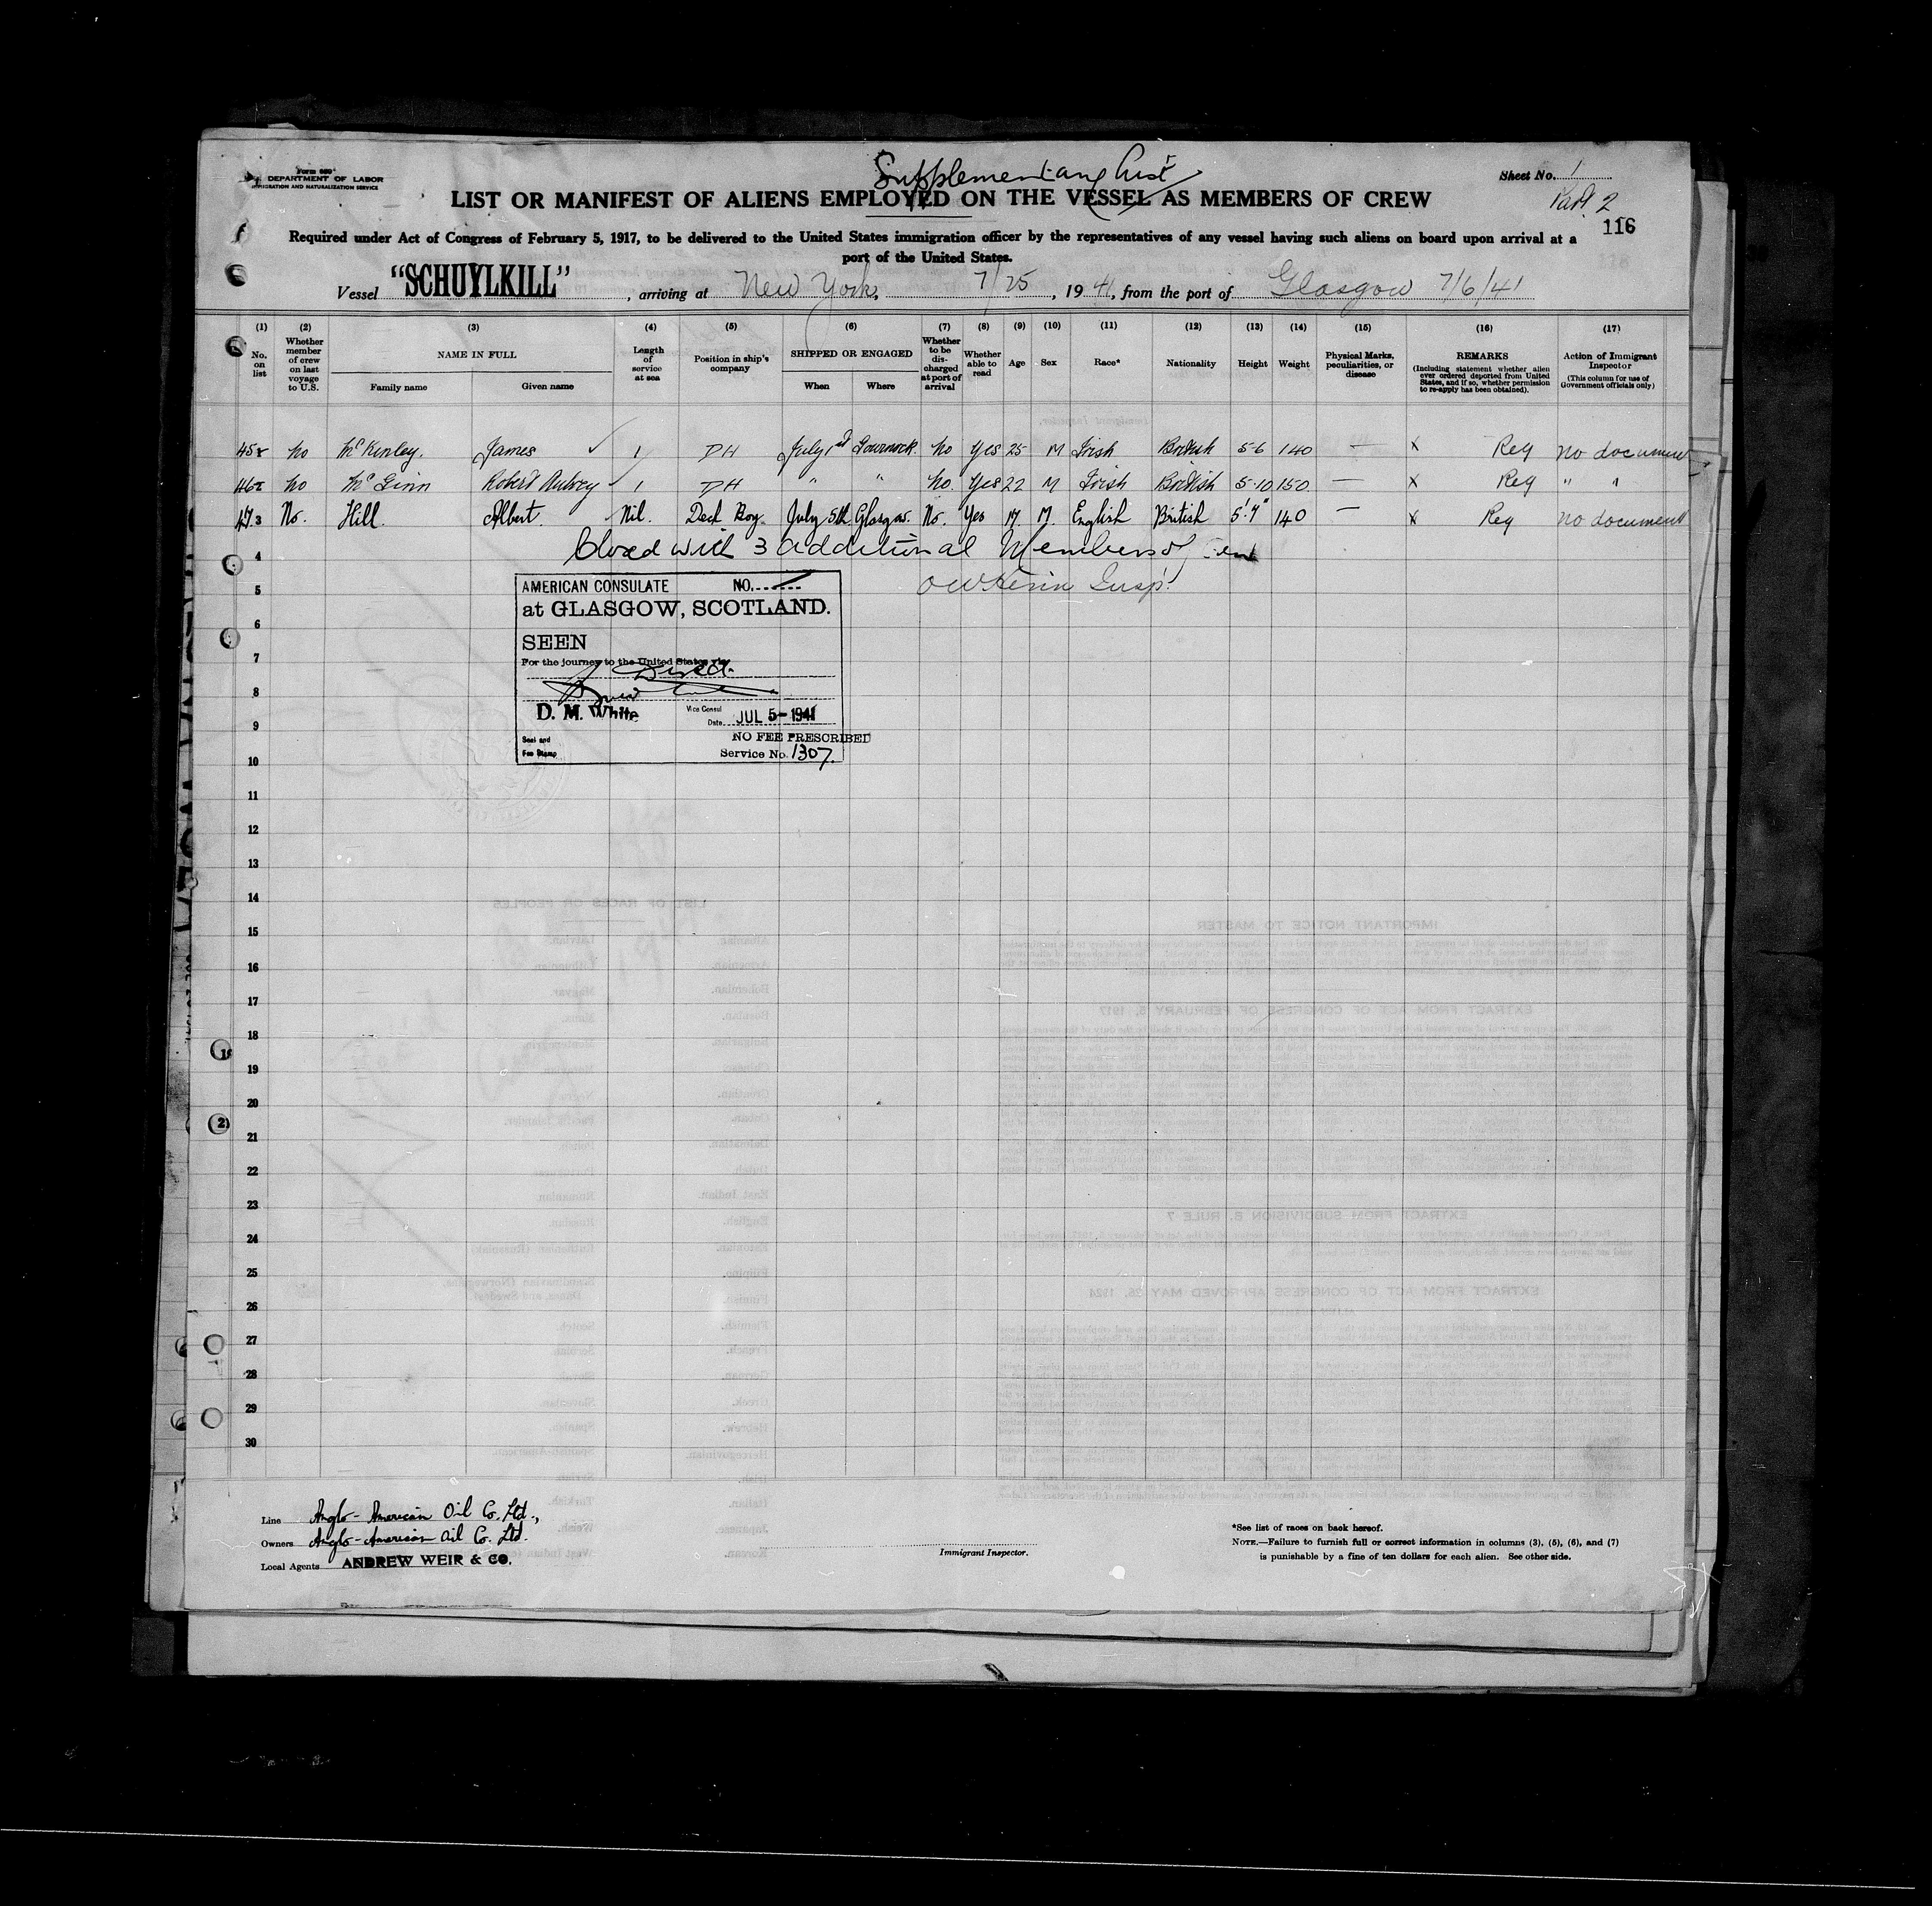 Supplementary List
Form 680
DEPARTMENT OF LABOR
IMMIGRATION AND NATURALIZATION SERVICE
Sheet No. 1
Part 2
LIST OR MANIFEST OF ALIENS EMPLOYED ON THE VESSEL AS MEMBERS OF CREW
116
Required under Act of Congress of February 5, 1917, to be delivered to the United States immigration officer by the representatives of any vessel having such aliens on board upon arrival at a
port of the United States.
Vessel "SCHUYLKILL", arriving at New York, 7/25, 1941, from the port of Glasgow 7/6/41
(1) (2) (3) (4) (5) (6) (7) (8) (9) (10) (11) (12) (13) (14) (15) (16) (17)
No. on list
Whether member of crew on last voyage to U.S.
NAME IN FULL
Family name
Given name
Length of service at sea
Position in ship's company
SHIPPED OR ENGAGED
When
Where
Whether to be discharged at port of arrival
Whether able to read
Age
Sex
Race*
Nationality
Height
Weight
Physical Marks, peculiarities, or disease
REMARKS
(Including statement whether alien ever ordered deported from United States, and if so, whether permission to re-apply has been obtained).
Action of Immigrant Inspector
(This column for use of Government officials only)
45 No McKinley. James 1 DH July 1st Gourock No Yes 25 M Irish British 5-6 140 — x Reg no document
46 No McGinn Robert Aubrey 1 DH " " No. Yes 22 M Irish British 5-10 150 — x Reg " "
47 3 No. Hill. Albert. Nil. Deck Boy. July 5th Glasgow. No. Yes 17 M. English British 5'.7" 140 — x Reg no document
4 Closed with 3 additional Members of Crew
5 Insp.
AMERICAN CONSULATE NO.
at GLASGOW, SCOTLAND.
SEEN
For the journey to the United States via
Direct.
D. M. White
Vice Consul
Date JUL 5-1941
Seal and
Fee Stamp
NO FEE PRESCRIBED
Service No. 1307.
6
7
8
9
10
11
12
13
14
15
16
17
18
19
20
21
22
23
24
25
26
27
28
29
30
Line Anglo-American Oil Co. Ltd.,
Owners Anglo-American Oil Co. Ltd.
Local Agents ANDREW WEIR & CO.
Immigrant Inspector.
*See list of races on back hereof.
NOTE.—Failure to furnish full or correct information in columns (3), (5), (6), and (7)
is punishable by a fine of ten dollars for each alien. See other side.